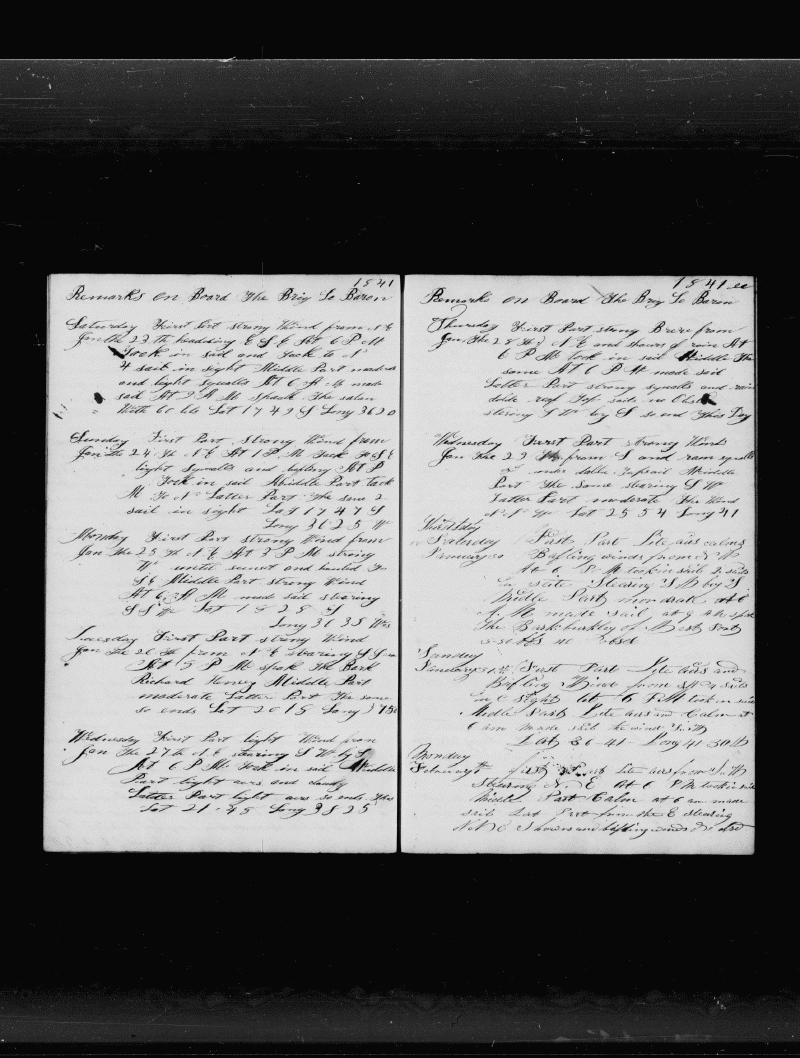 1841
Remarks on Board The Brig Le Baron
Saturday First Part strong Wind from N E
Jan the 23 th headding E S E At 6 P M
Took in sail and Tack to N
4 sail in sight Middle Part moderate
and light squalls At 6 A M made
sail At 9 A M spack The
With 60 bls Lat 17 49 S Long 36 20
Sunday First Part strong Wind from
Jan the 24 Th N E At 1 P M Tack To S E
light squalls and At P
M Took in sail Middle Part Tack
To N Latter Part The same 2
sail in sight Lat 17 47 S
Long 36 25 W
Monday First Part strong Wind from
Jan the 25 Th N E At 3 P M strong
W until sunset and hauled To
S E Middle Part strong Wind
At 6 A M mad sail stearing
S S W Lat 18 28 S
Long 36 35 Wes
Tuesday First Part strong Wind
Jan the 26 Th from N E stearing S S
At 5 P M spok The Bark
Richard Henry Middle Part
moderate Latter Part The same
so ends Lat 20 15 Long 37 50
Wednesday First Part light Wind from
Jan The 27 th N E stearing S W by S
At 6 P M Took in sail Middle
Part light airs and cloudy
Latter Part light airs so ends This
Lat 21-45 Long 38 25
1841
Remarks on Board The Brig Le Baron
Thursday First Part strong Breze from
Jan The 28 Th N E and showrs of rain At
6 P M took in sail Middle The
same At 6 P M made sail
Latter Part strong squalls and rain
doble reef Top sails no Obs
stering S W by S so end This Day
Wednesday First Part strong Winds
Jan the 29 from S and rain squalls
under doble Topsail Middle
Part The Same stearing S W
Latter Part moderate The Wind
N N W Lat 25 54 Long 41
Saterday First Part Lite airs calms
January 30 Bafling winds from
At 6 P M took in sail 2 sails
in scite Stearing S W by S
Midle Part moderate at 6
A M made sail at 9 A M spok
The Bark of
Sunday
January 31 th First Part Lite airs and
Bafling Winds from 4 sails
in Sight At 6 P M took in sail
Midle Part Lite airs and Calm at
6 am made sail the wind S W
Lat 26-41- Long 41 30 W
Monday
February First Part Lite airs from S W
Stearing N. E At 6 P M took in sail
Midle Part Calm at 6 am made
sail Last Part from the E Stearing
N N E Showers and bafling winds